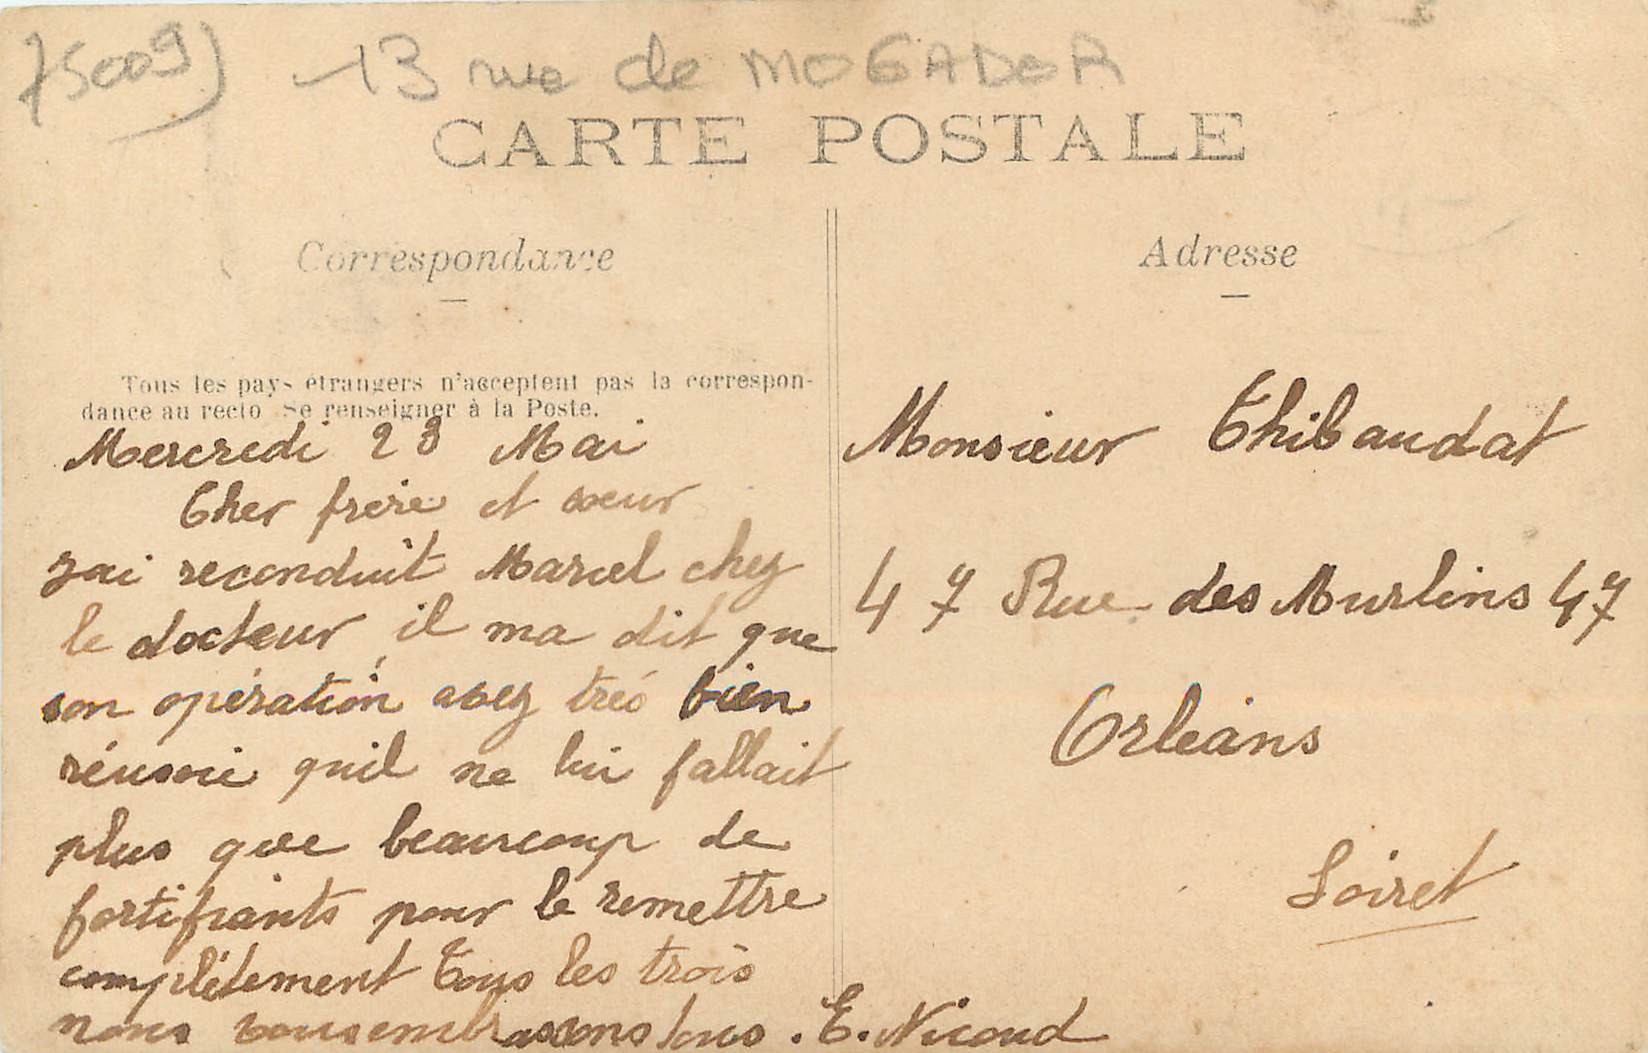 75009) - 13 rue de MOGADOR
CARTE POSTALE
Correspondance
Tous les pays étrangers n'acceptent pas la correspon-
dance au recto Se renseigner à la Poste.
Mercredi 23 Mai
Cher frère et sœur
j'ai reconduit Marcel chez
le docteur, il ma dit que
son opération avez très bien
réussie quil ne lui fallait
plus que beaucoup de
fortifiants pour le remettre
complètement tous les trois
nous vousembrassons tous. E. Nicoud
Adresse
Monsieur Thibaudat
47 Rue des Murlins 47
Orléans
Loiret